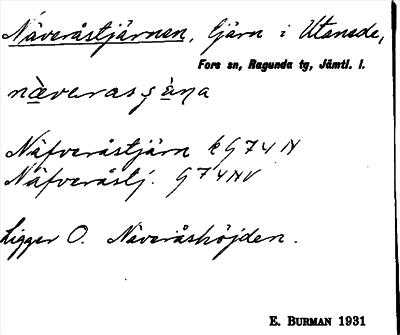 Näveråstjärnen, tjärn i Utanede,
Fors sn, Ragunda tg, Jämtl. l.
Näfveråstjärn kG74N
Näfveråstj. G74NV
Ligger O. Näveråshöjden.
E. BURMAN 1931